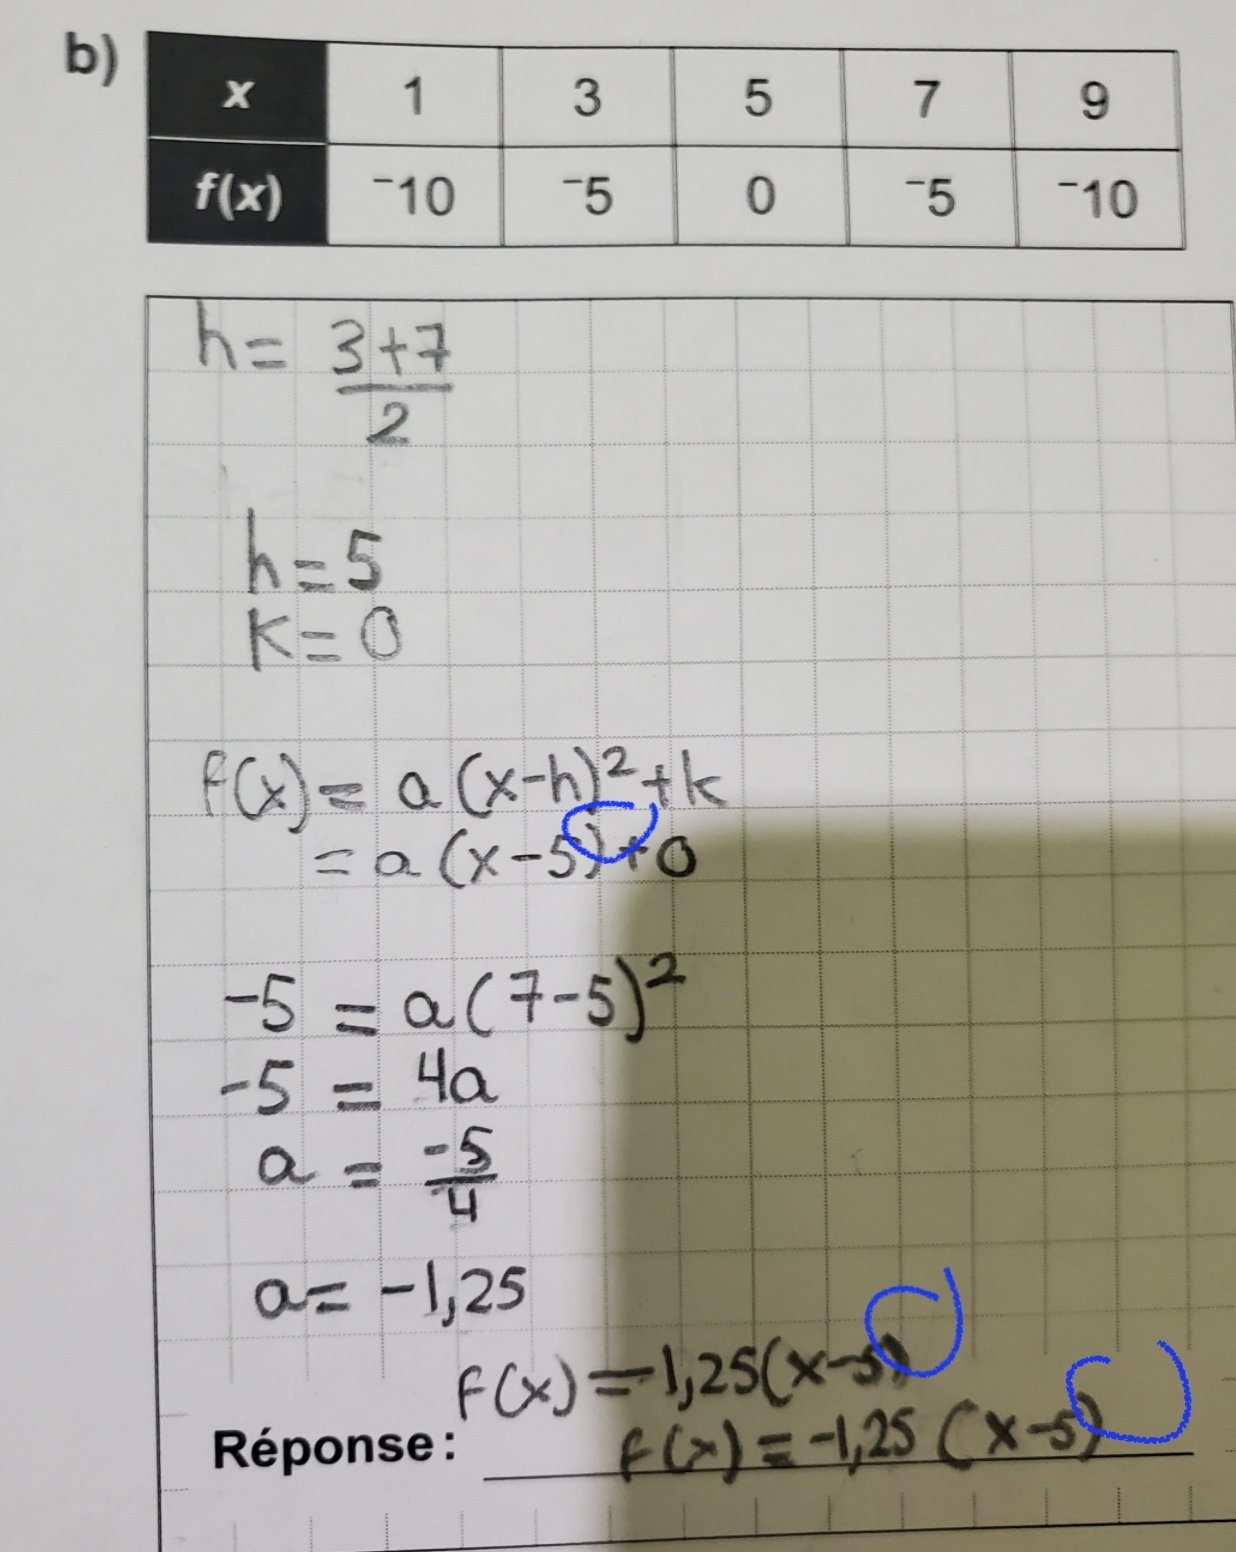 b)
x 1 3 5 7 9
f(x) ⁻10 ⁻5 0 ⁻5 ⁻10
h = 3+7
2
h = 5
K = 0
f(x) = a (x-h)² + k
= a (x-5) + 0
-5 = a (7-5)²
-5 = 4a
a = -5
4
a = -1,25
f(x) = -1,25(x-5)
Réponse : f(x) = -1,25 (x-5)